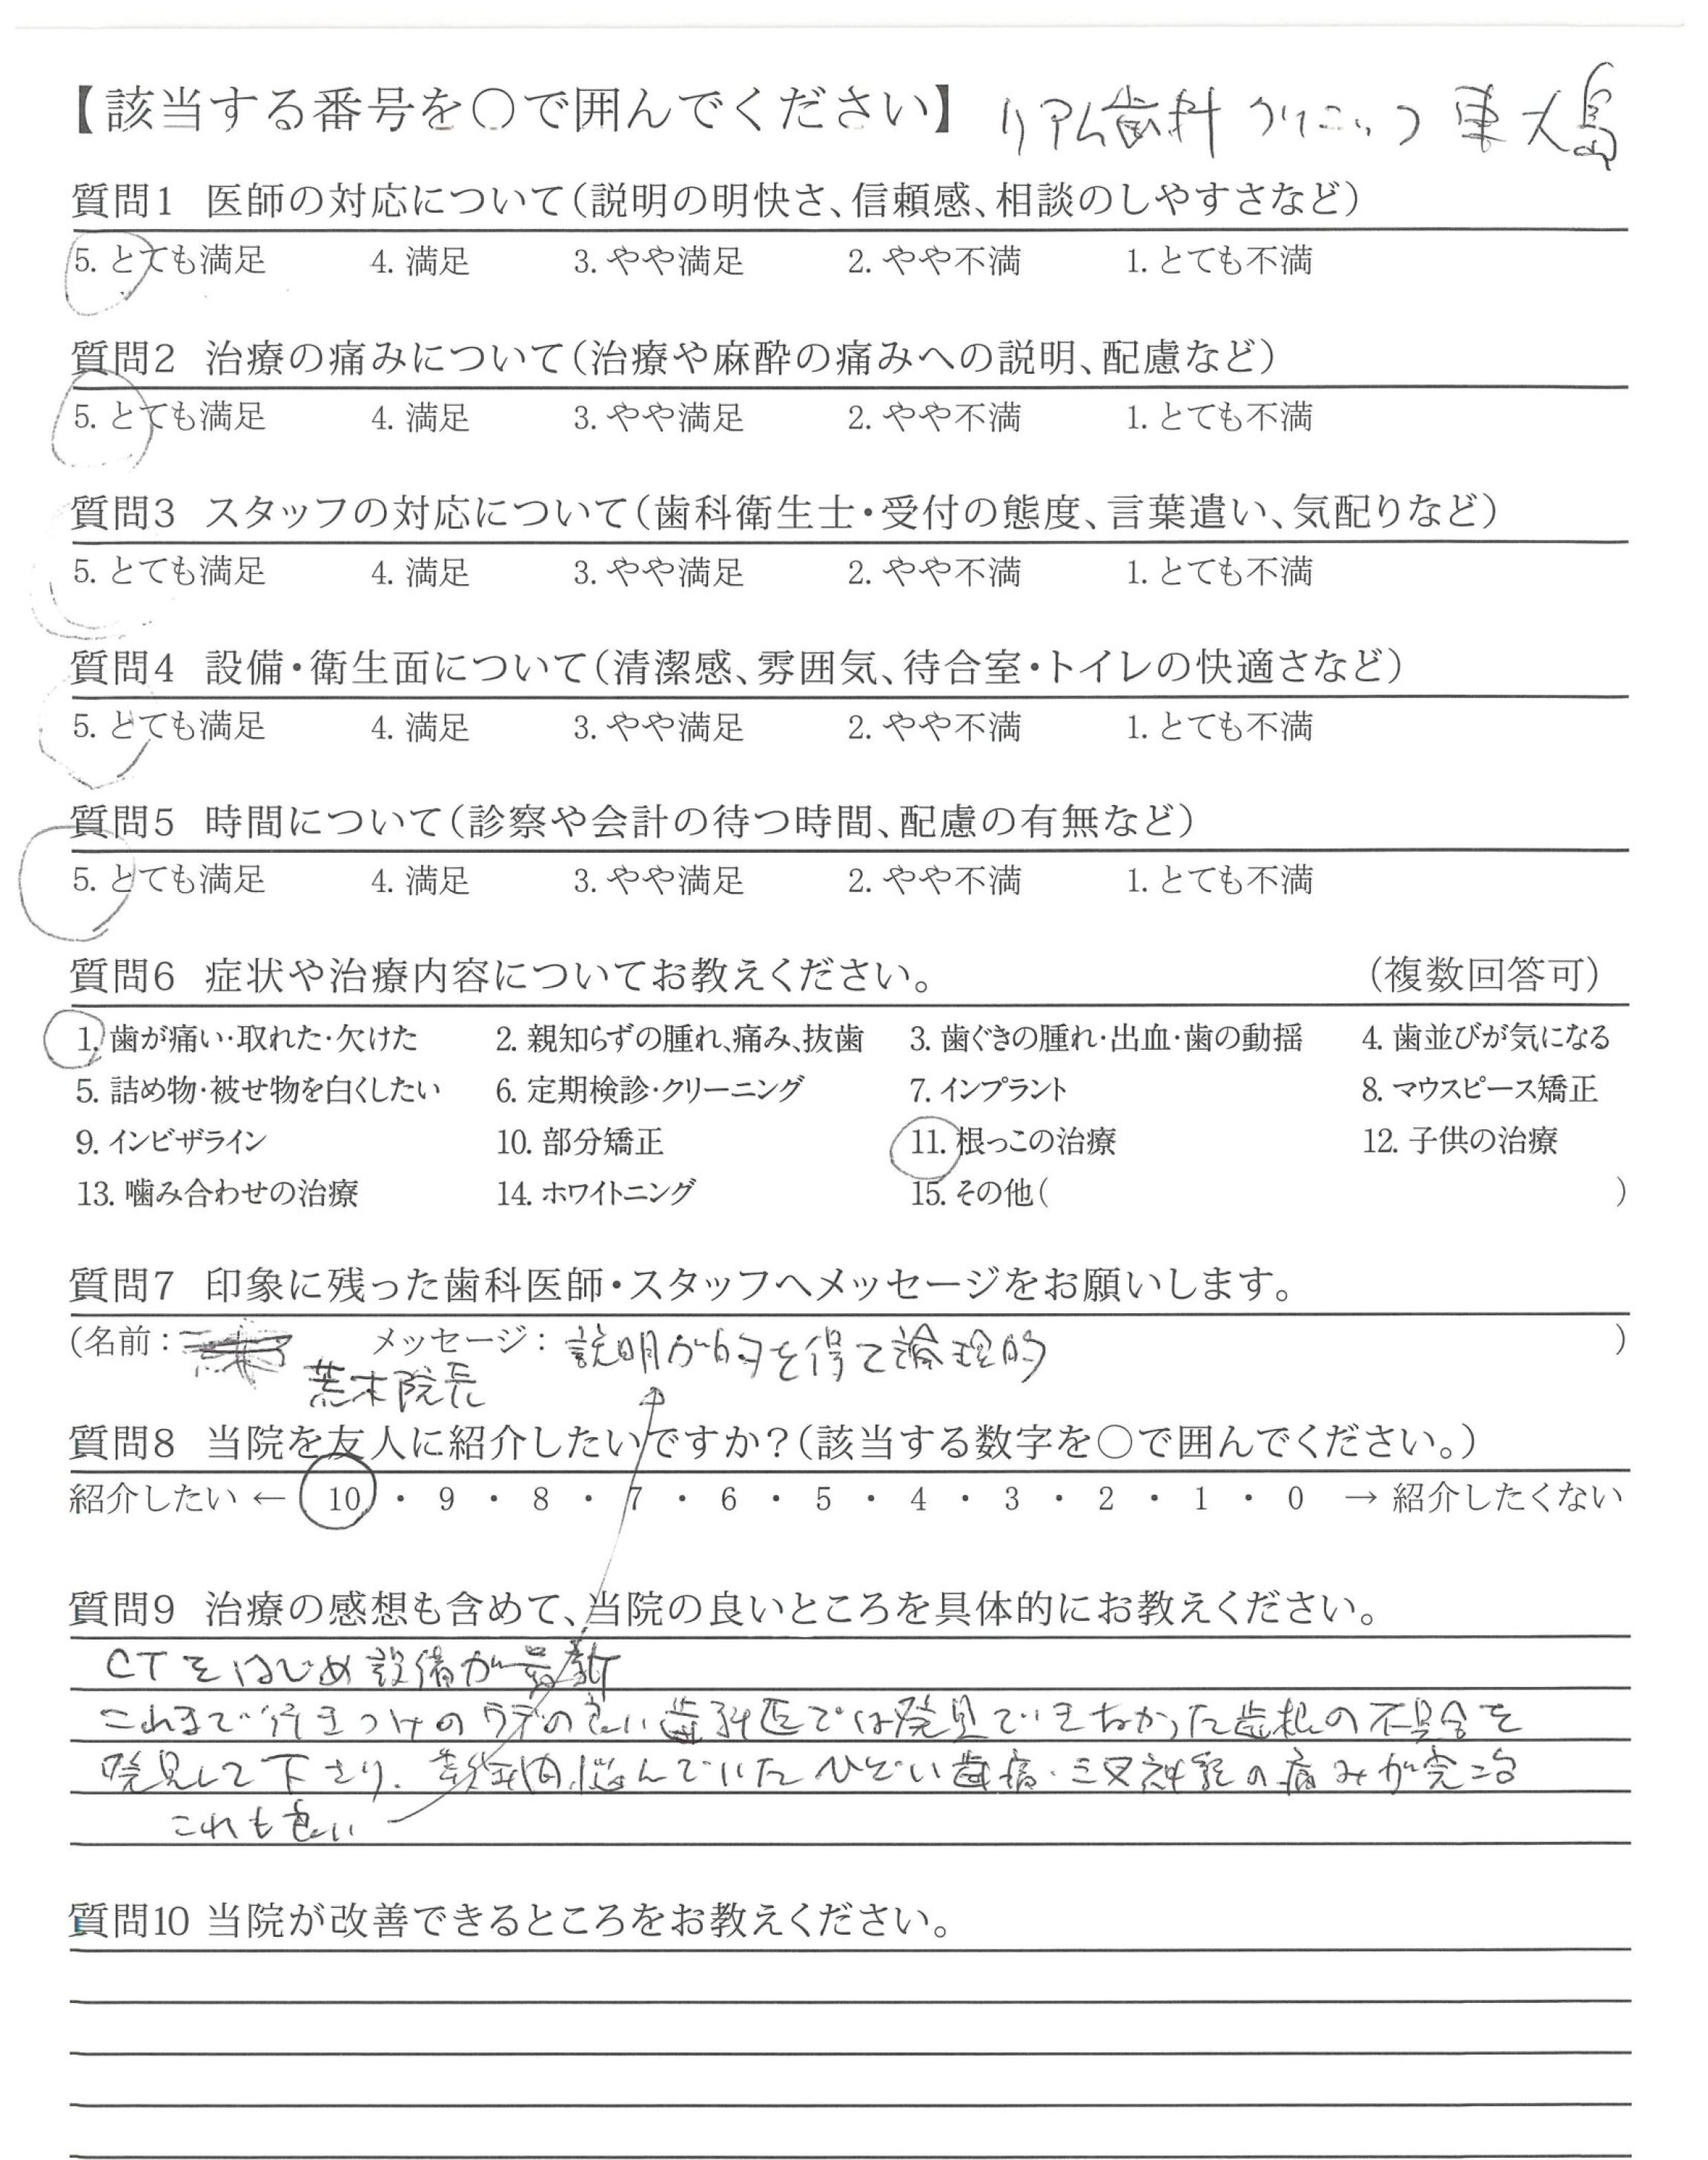 【該当する番号を○で囲んでください】 リアム歯科クリニック東大島
質問1 医師の対応について(説明の明快さ、信頼感、相談のしやすさなど)
5. とても満足 4. 満足 3. やや満足 2. やや不満 1. とても不満
質問2 治療の痛みについて(治療や麻酔の痛みへの説明、配慮など)
5. とても満足 4. 満足 3. やや満足 2. やや不満 1. とても不満
質問3 スタッフの対応について(歯科衛生士・受付の態度、言葉遣い、気配りなど)
5. とても満足 4. 満足 3. やや満足 2. やや不満 1. とても不満
質問4 設備・衛生面について(清潔感、雰囲気、待合室・トイレの快適さなど)
5. とても満足 4. 満足 3. やや満足 2. やや不満 1. とても不満
質問5 時間について(診察や会計の待つ時間、配慮の有無など)
5. とても満足 4. 満足 3. やや満足 2. やや不満 1. とても不満
質問6 症状や治療内容についてお教えください。 (複数回答可)
1. 歯が痛い・取れた・欠けた 2. 親知らずの腫れ、痛み、抜歯 3. 歯ぐきの腫れ・出血・歯の動揺 4. 歯並びが気になる
5. 詰め物・被せ物を白くしたい 6. 定期検診・クリーニング 7. インプラント 8. マウスピース矯正
9. インビザライン 10. 部分矯正 11. 根っこの治療 12. 子供の治療
13. 噛み合わせの治療 14. ホワイトニング 15. その他( )
質問7 印象に残った歯科医師・スタッフへメッセージをお願いします。
(名前: メッセージ: 説明が的を得て論理的 )
荒木院長
質問8 当院を友人に紹介したいですか?(該当する数字を○で囲んでください。)
紹介したい ← 10 ・ 9 ・ 8 ・ 7 ・ 6 ・ 5 ・ 4 ・ 3 ・ 2 ・ 1 ・ 0 → 紹介したくない
質問9 治療の感想も含めて、当院の良いところを具体的にお教えください。
CTをはじめ設備が最新
これまで行きつけのウデの良い歯科医では発見できなかった歯根の不具合を
発見して下さり、数年内悩んでいたひどい歯痛・三叉神経の痛みが完治
これも良い
質問10 当院が改善できるところをお教えください。